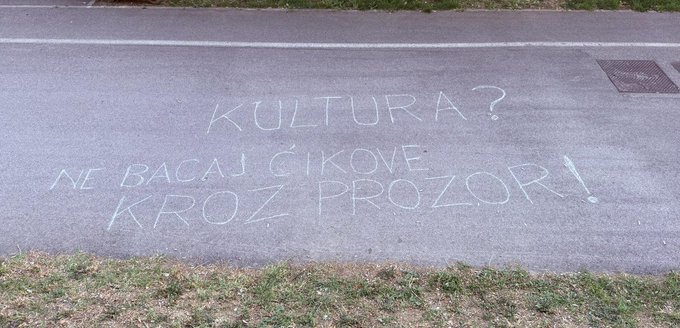 KULTURA?
NE BACAJ ČIKOVE
KROZ PROZOR!